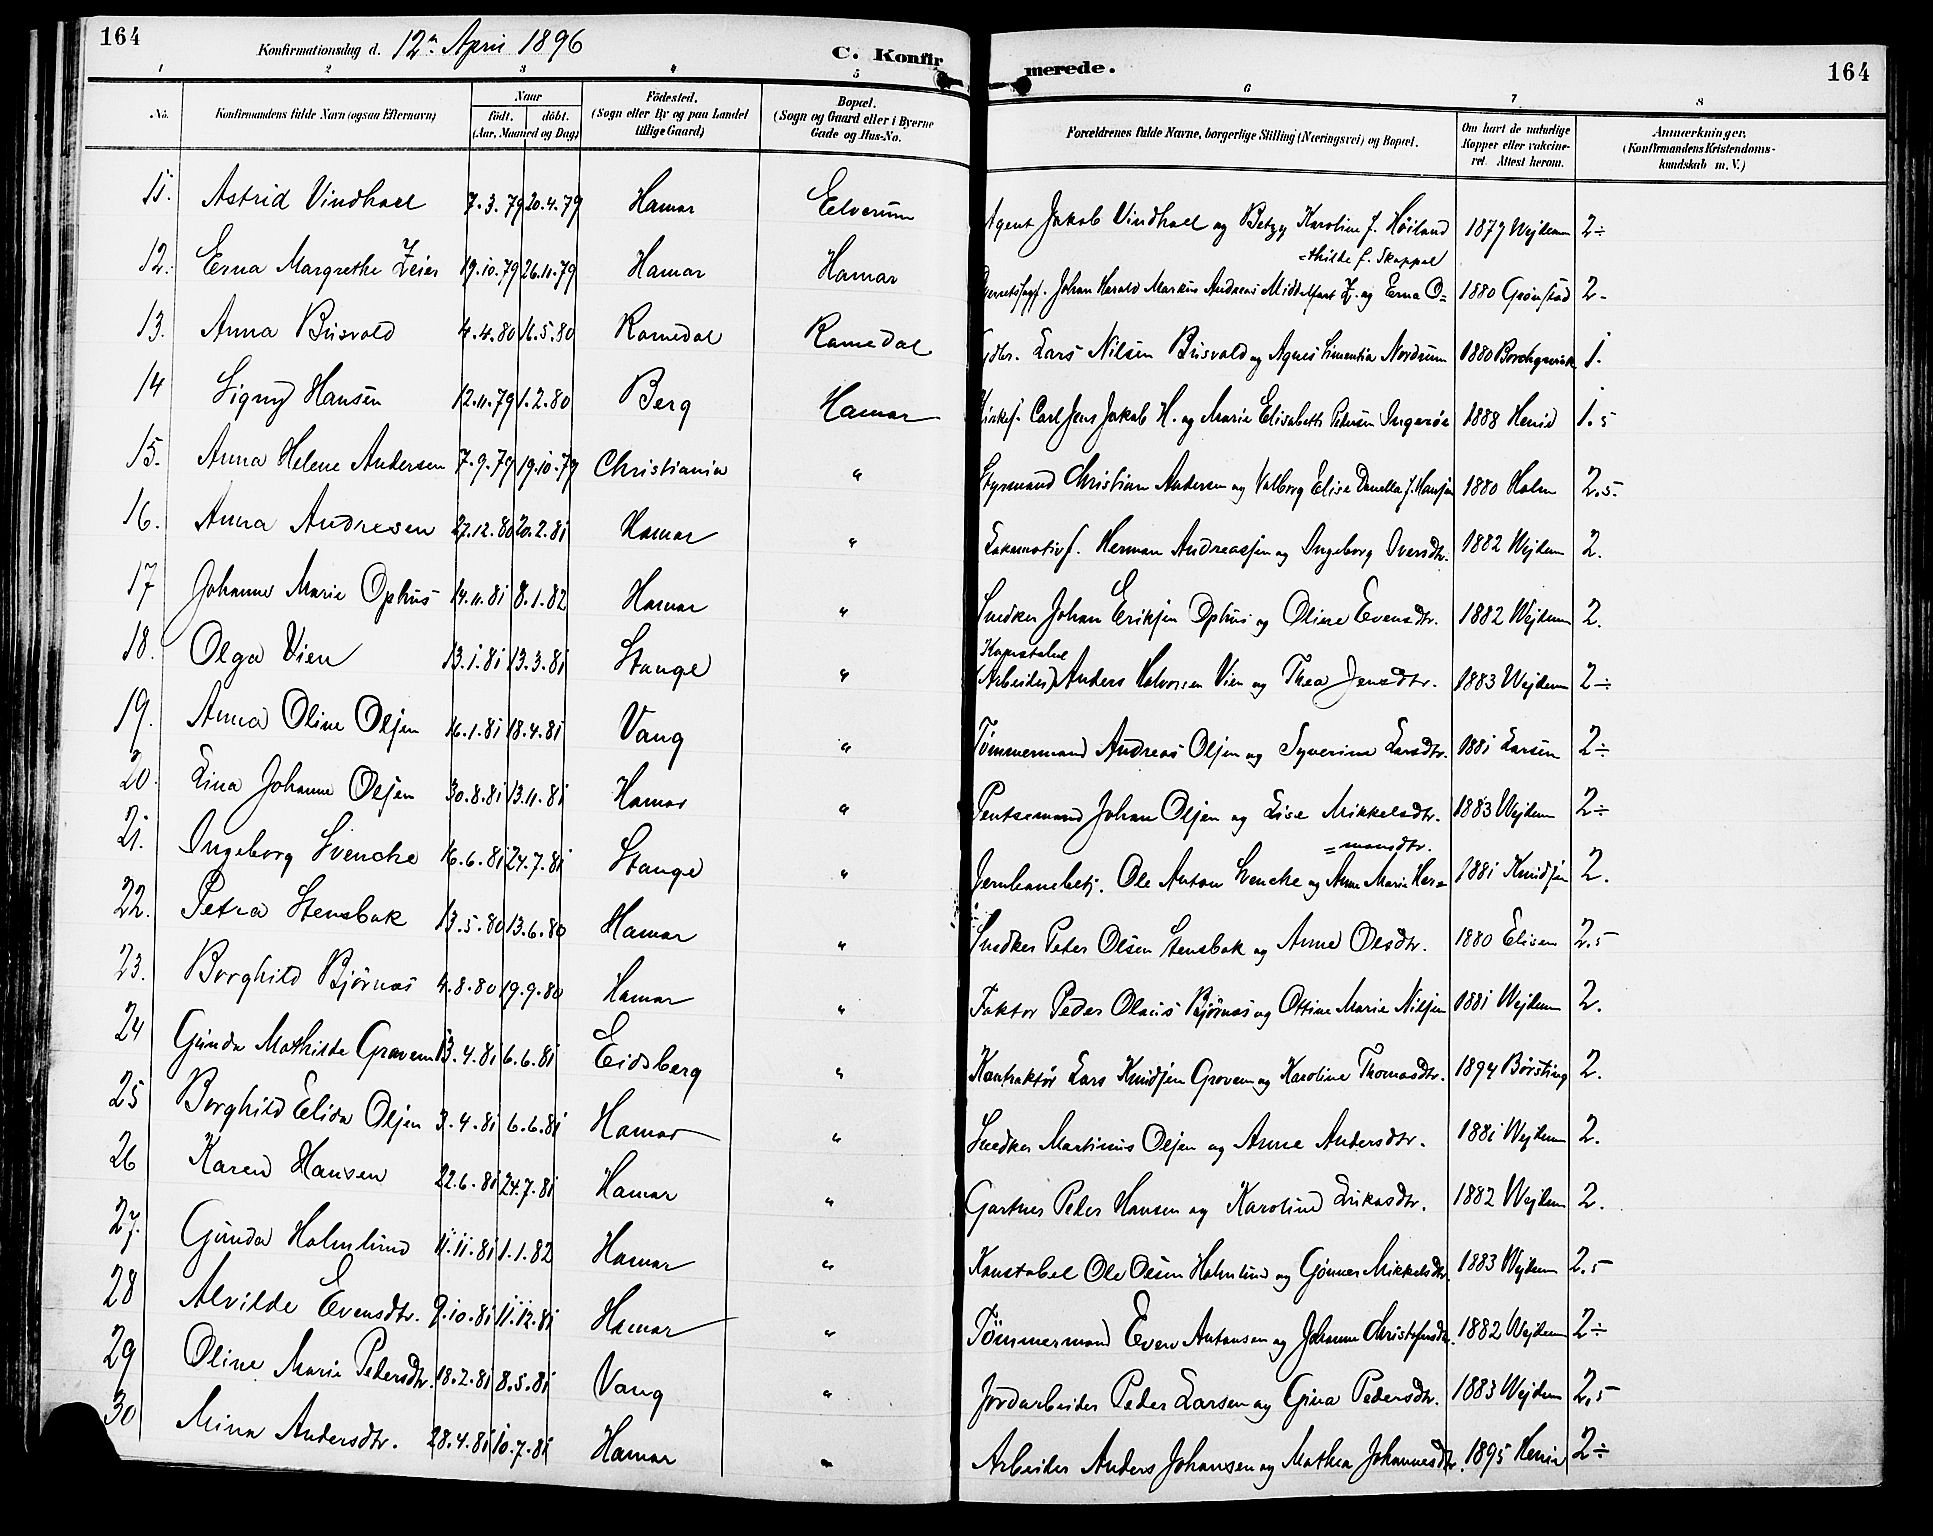 164
Konfirmationsdag d. 12te April 1896
C. Konfirmerede.
164
1 2 3 4 5 6 7 8
No. Konfirmandens fulde Navn (ogsaa Efternavn) Naar födt. döbt. (Aar, Maaned og Dag) Födested. (Sogn eller By og paa Landet tillige Gaard) Bopæl. (Sogn og Gaard eller i Byerne Gade og Hus-No. Forældrenes fulde Navne, borgerlige Stilling (Næringsvei) og Bopæl. Om havt de naturlige Kopper eller vakcineret. Attest herom. Anmærkninger. (Konfirmandens Kristendomskundskab m. V.)
11. Astrid Vindhael 7.3.79 20.4.79 Hamar Elverum Agent Jakob Vindhael og Betzy Karoline f. Höiland 1879 Wejdem 2÷
12. Erna Margrethe Zeier 19.10.79 26.11.79 Hamar Hamar Johan Harald Markus Andreas Middelfart Z. og Erna O=thilde f. Skappel 1880 Grönstad 2-
13. Anna Busvold 4.4.80 16.5.80 Romedal Romedal Gdbr. Lars Nilsen Busvold og Agnes Simentia Nordrum 1880 Borchgrevink 1.
14 Signy Hansen 12.11.79 1.2.80 Berg Hamar Carl Jens Jakob H. og Marie Elisabeth Petersen Ingeröe 1888 Henie 1.5
15. Anna Helene Andersen 7.9.79 19.10.79 Christiania " Styrmand Christian Andersen og Valborg Elise Danella f. Hansen 1880 Holm 2.5.
16. Anna Andresen 27.12.80 20.2.81 Hamar " Lokomotivf. Herman Andreassen og Ingeborg Iversdtr. 1882 Wejdem 2.
17 Johanne Marie Ophus 14.11.81 8.1.82 Hamar " Snedker Johan Eriksen Ophus og Oline Evensdtr. 1882 Wejdem 2.
18. Olga Vien 13.1.81 13.3.81 Stange " (Arbeider) Anders Halvorsen Vien og Thea Jensdtr. 1883 Wejdem 2÷
19. Anna Oline Olsen 16.1.81 18.4.81 Vang " Tömmermand Andreas Olsen og Syverine Larsdtr. 1881 Larsen 2÷
20. Lina Johanne Olsen 30.8.81 13.11.81 Hamar " Pentsemand Johan Olsen og Lise Mikkelsdtr. 1883 Wejdem 2÷
21. Ingeborg Svencke 16.6.81 24.7.81 Stange " Jernbanebetj. Ole Anton Svencke og Anne Marie Her=mansdtr. 1881 Knudsen 2.
22. Petra Stensbak 13.5.80 13.6.80 Hamar " Snedker Peter Olsen Stensbak og Anne Olsdtr. 1880 Elisen 2.5
23. Borghild Björnas 4.8.80 19.9.80 Hamar " Faktor Peder Olaus Björnas og Ottine Marie Nilsen 1881 Wejdem 2.
24 Gunda Mathilde Grovem 13.4.81 6.6.81 Eidsberg " Kontraktör Lars Knudsen Grovem og Karoline Thomasdtr. 1894 Börsting 2.
25 Borghild Elida Olsen 3.4.81 6.6.81 Hamar " Snedker Martinus Olsen og Anne Andersdtr. 1881 Wejdem 2.
26 Karen Hansen 22.6.81 24.7.81 Hamar " Gartner Peder Hansen og Karoline Eriksdtr. 1882 Wejdem 2.
27. Gunda Holmlund 11.11.81 1.1.82 Hamar " Konstabel Ole Olsen Holmlund og Gunner Mikkelsdtr. 1883 Wejdem 2.5
28 Alvilde Evensdtr. 9.10.81 11.12.81 Hamar " Tömmermand Even Antonsen og Johanne Christofersdtr. 1882 Wejdem 2÷
29 Oline Marie Pedersdtr. 18.2.81 8.5.81 Vang " Jordarbeider Peder Larsen og Gina Pedersdtr. 1883 Wejdem 2.5
30 Mina Andersdtr. 28.4.81 10.7.81 Hamar " Arbeider Anders Johansen og Mathea Johannesdtr. 1895 Henie 2÷